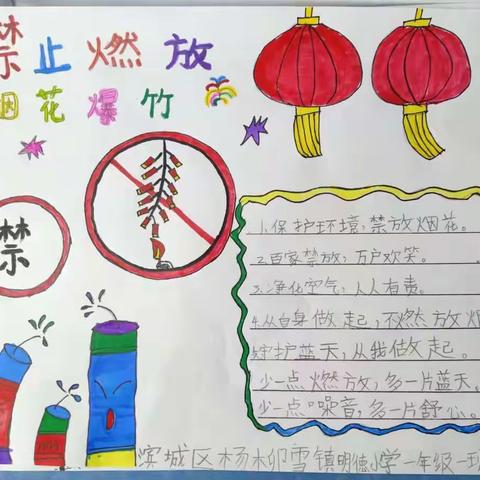 禁止燃放
烟花爆竹
禁
1.保护环境,禁放烟花。
2.百家禁放,万户欢笑。
3.净化空气,人人有责。
4.从自身做起,不燃放烟
守护蓝天,从我做起。
少一点燃放,多一片蓝天。
少一点噪音,多一片舒心。
滨城区杨柳雪镇明德小学一年级一班